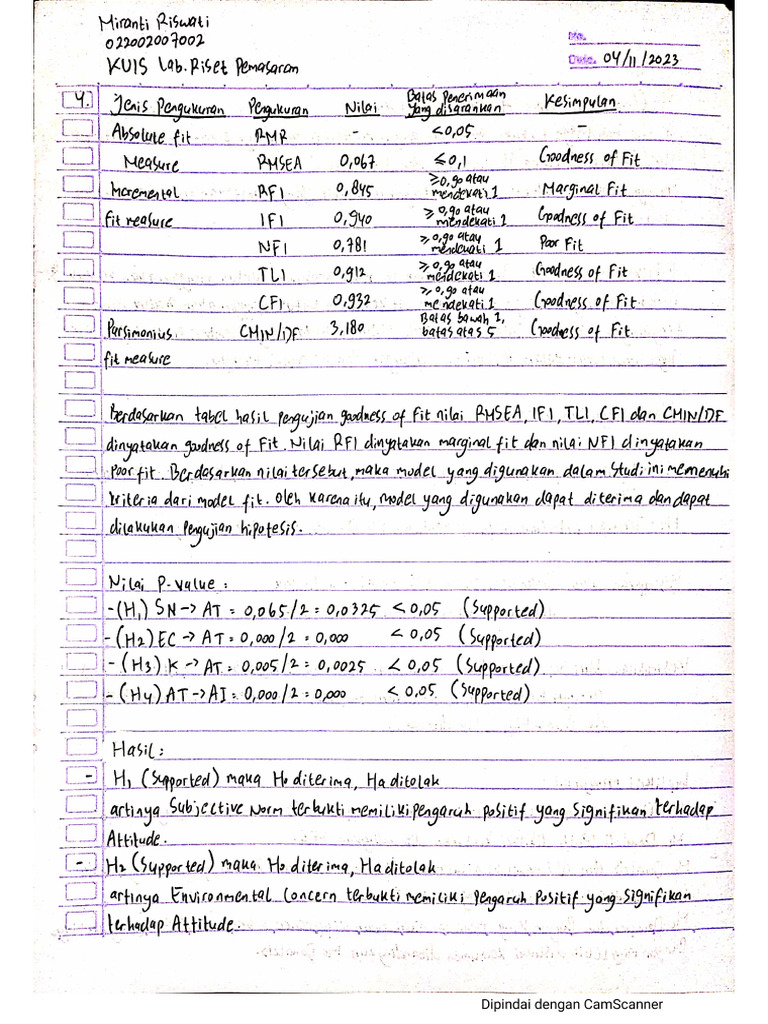 Miranti Riswati
022002007002
KUIS Lab. Riset Pemasaran
No.
Date. 04/11/2023
4. Jenis Pengukuran Pengukuran Nilai Batas Penerimaan yang disarankan Kesimpulan
Absolute fit RMR - <0,05 -
Measure RMSEA 0,067 ≤0,1 Goodness of Fit
Incremental RFI 0,845 ≥0,90 atau mendekati 1 Marginal Fit
fit measure IFI 0,940 ≥0,90 atau mendekati 1 Goodness of Fit
NFI 0,781 ≥0,90 atau mendekati 1 Poor Fit
TLI 0,912 ≥0,90 atau mendekati 1 Goodness of Fit
CFI 0,932 ≥0,90 atau mendekati 1 Goodness of Fit
Parsimonius CMIN/DF 3,180 Batas bawah 1, batas atas 5 Goodness of Fit
fit measure
Berdasarkan tabel hasil pengujian goodness of fit nilai RMSEA, IFI, TLI, CFI dan CMIN/DF
dinyatakan goodness of Fit. Nilai RFI dinyatakan marginal fit dan nilai NFI dinyatakan
Poor fit. Berdasarkan nilai tersebut, maka model yang digunakan dalam Studi ini memenuhi
kriteria dari model fit. Oleh karena itu, model yang digunakan dapat diterima dan dapat
dilakukan Pengujian hipotesis.
Nilai P-value :
- (H1) SN -> AT = 0,065/2 = 0,0325 < 0,05 (Supported)
- (H2) EC -> AT = 0,000/2 = 0,000 < 0,05 (Supported)
- (H3) K -> AT = 0,005/2 = 0,0025 < 0,05 (Supported)
- (H4) AT -> AI = 0,000/2 = 0,000 < 0,05 (Supported)
Hasil :
- H1 (Supported) maka Ho diterima, Ha ditolak
artinya Subjective Norm terbukti memiliki pengaruh positif yang signifikan terhadap
Attitude.
- H2 (Supported) maka Ho diterima, Ha ditolak
artinya Environmental Concern terbukti memiliki pengaruh positif yang signifikan
terhadap Attitude.
Dipindai dengan CamScanner